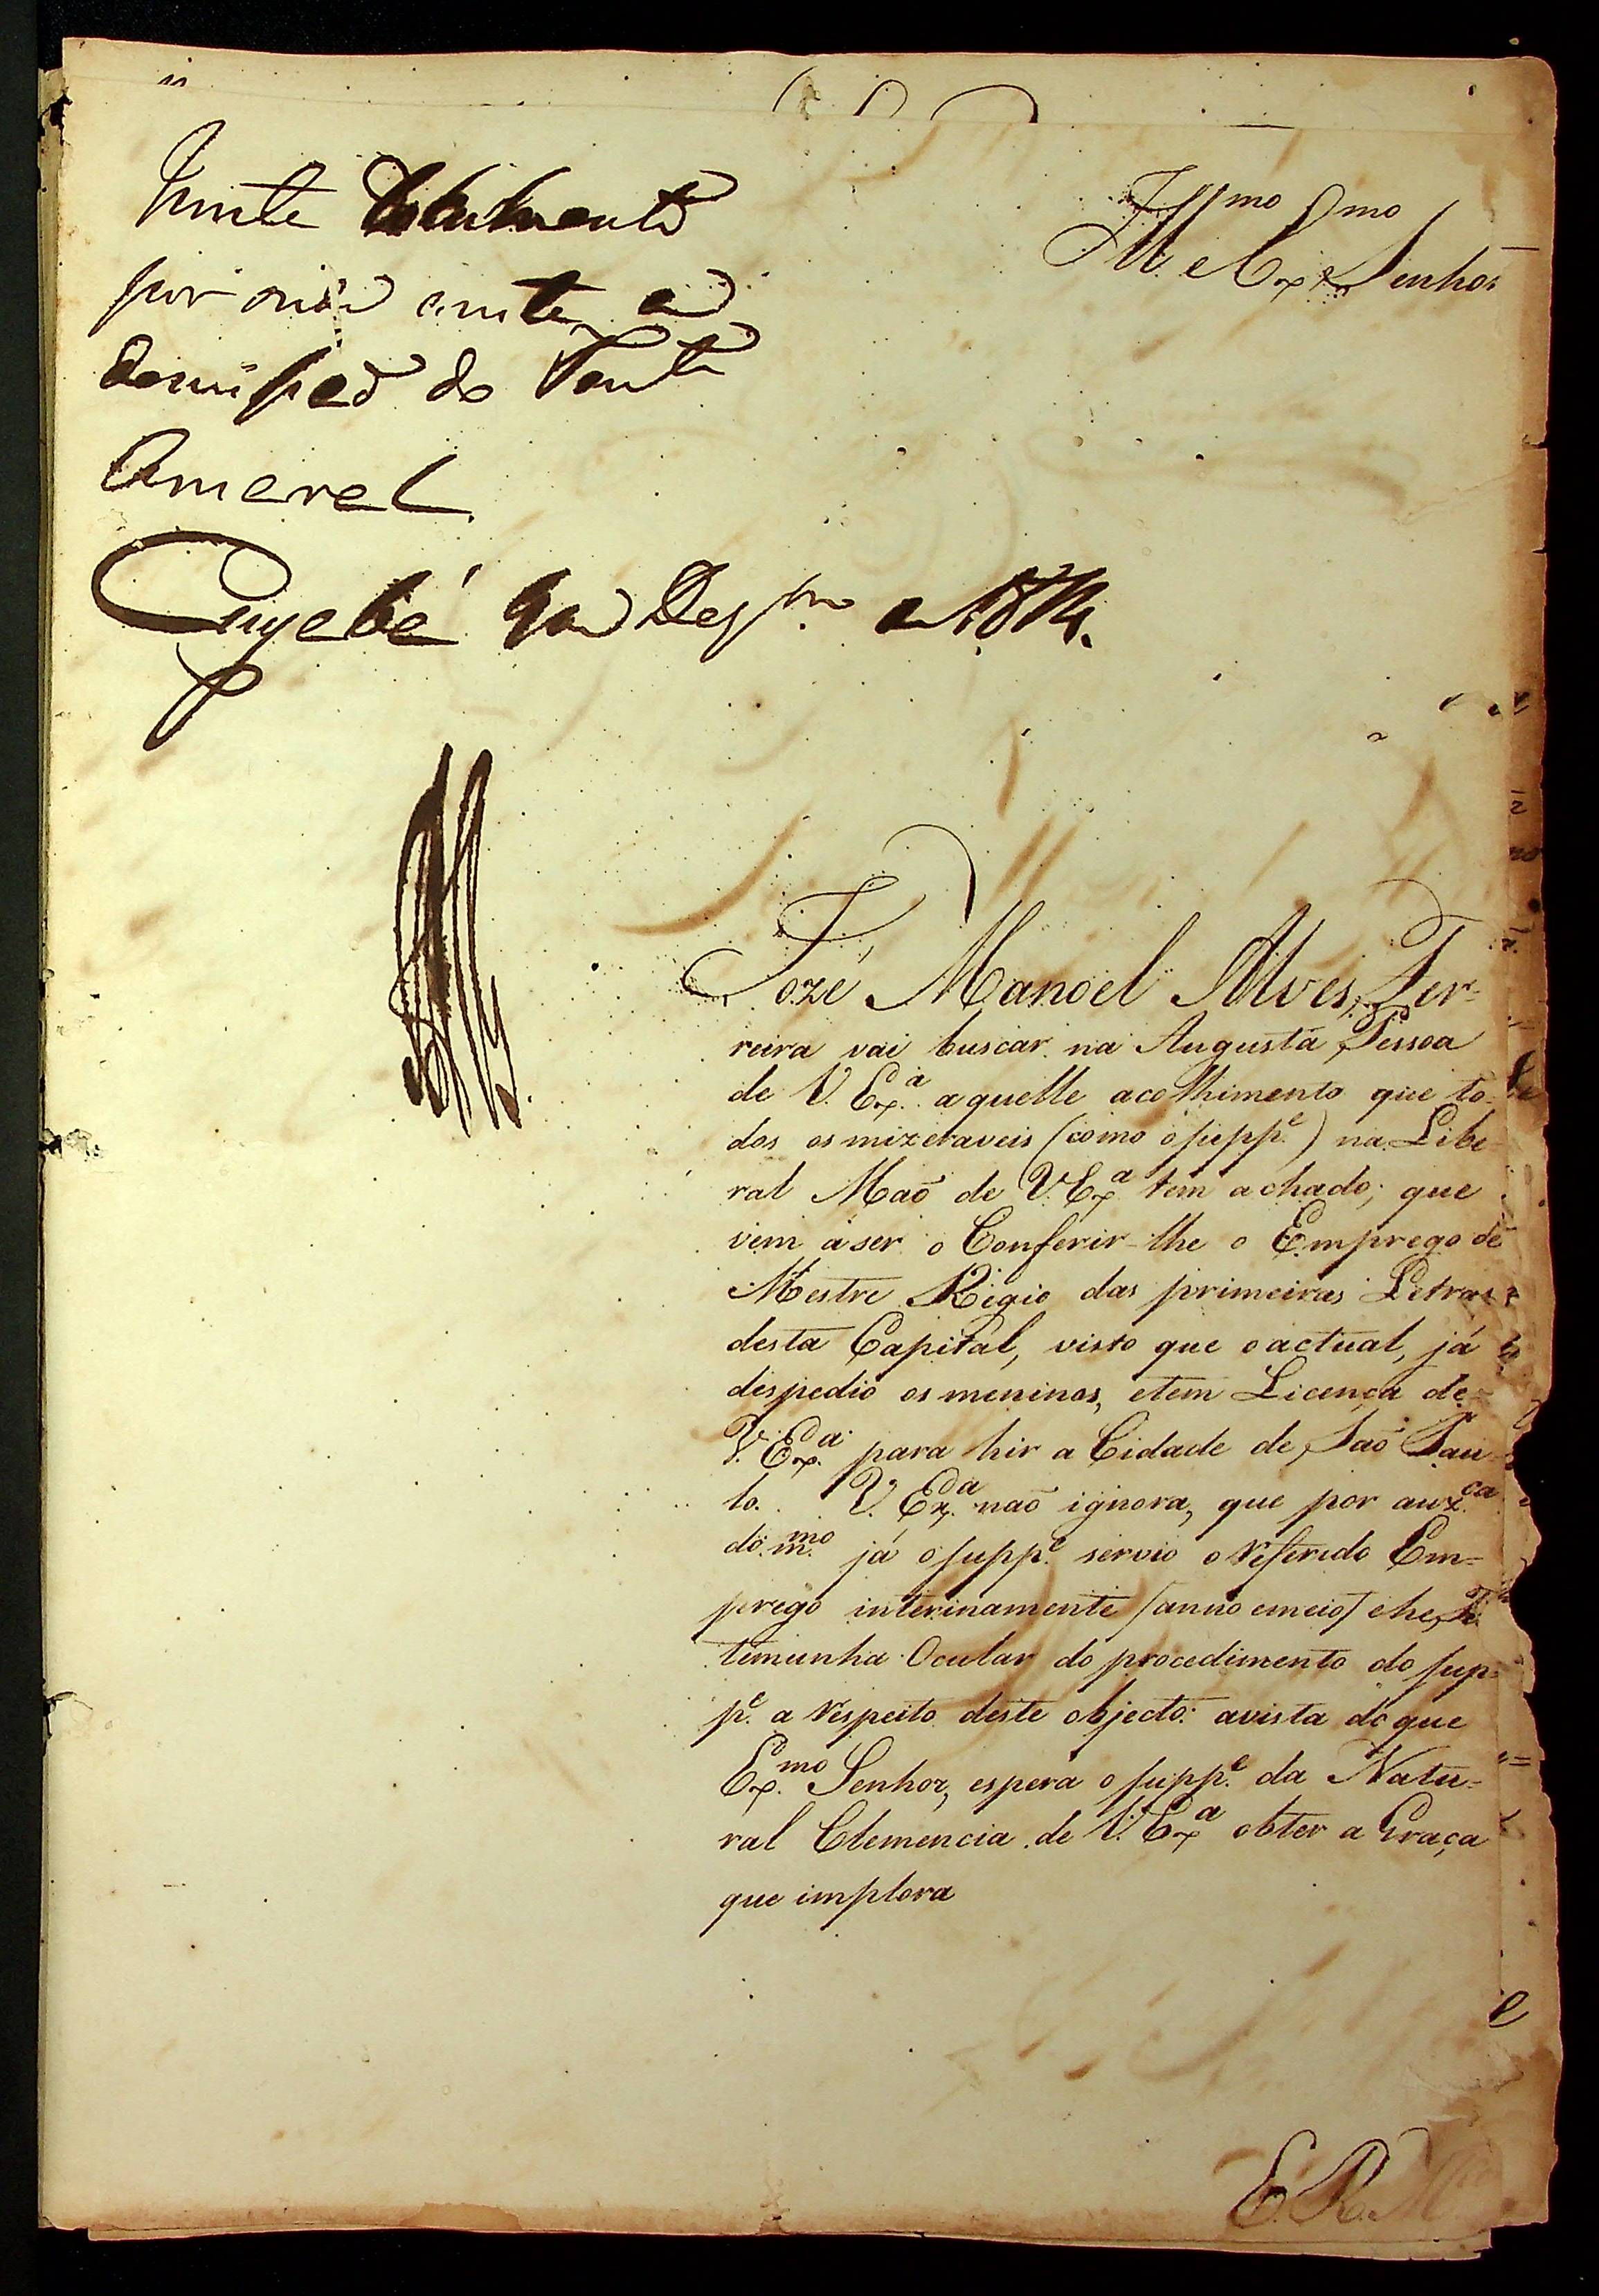 Junte Documento
por onde conste a
demissaõ do
Amaral.
Cuyabá de Dezbro
Illmo e Exmo Senhor
Jozé Manoel Alves Fer-
reira vai buscar na Augusta Pessoa
de V. Exa. aquelle acolhimento que to-
dos os mizeraveis (como o suppe.) na Libe-
ral Maõ de V. Exa tem achado; que
vem á ser o Conferir-lhe o Emprego de
Mestre Régio das primeiras Letras
desta Capital, visto que o actual, já
despedio os meninos, e tem Licença de
V. Exa. para hir a Cidade de Saõ Pau-
lo. V. Exa. naõ ignora, que por auzca.
do mmo. já o suppe. servio o referido Em-
prego interinamente /anno e meio/ e he Te
temunha Ocular do procedimento do sup-
pe. a respeito deste objecto: a vista do que
Exmo. Senhor, espera o suppe. da Natu-
ral Clemencia de V. Exa obter a Graça
que implora
E. R. Mce